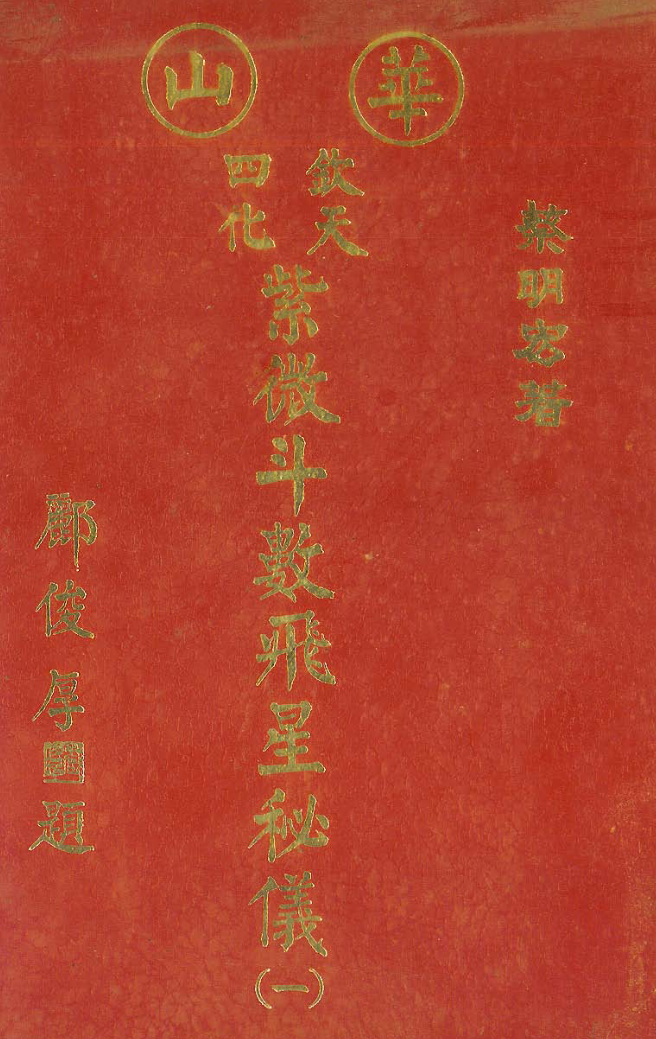 華山
欽天四化
紫微斗數飛星秘儀(一)
蔡明宏著
酈俊厚題